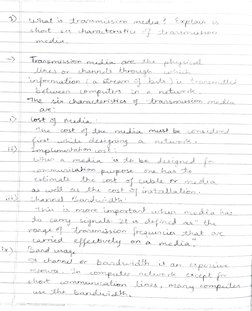 2) What is transmission media? Explain in
short six characteristics of transmission
media.
→ Transmission media are the physical
lines or channels through which
information (a stream of bits) is transmitted
between computers in a network.
The six characteristics of transmission media
are
i) Cost of media:
The cost of the media must be considered
first while designing a network.
ii) Implementation cost:
When a media is to be designed for
communication purpose one has to
estimate the cost of cable or media
as well as the cost of installation.
iii) Channel Bandwidth:
This is more important when media has
to carry signals. It is defined as "the
range of transmission frequencies that are
carried effectively on a media."
iv) Band usage
A channel or bandwidth is an expensive
In computer network except for
short communication lines, many computers
use the bandwidth.